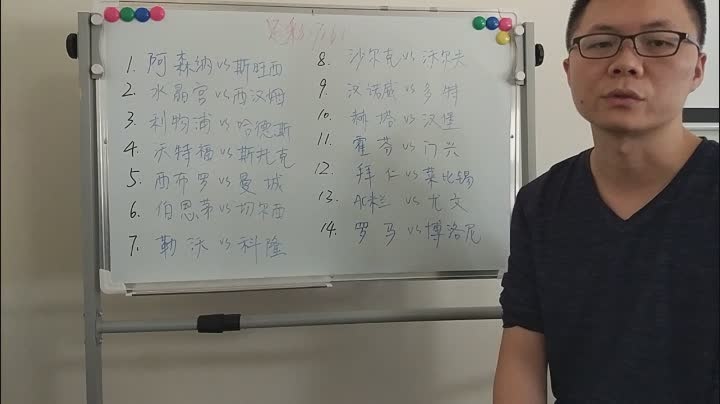 足彩
1. 阿森纳vs斯旺西
2. 水晶宫vs西汉姆
3. 利物浦vs哈德斯
4. 沃特福vs斯托克
5. 西布罗vs曼城
6. 伯恩茅vs切尔西
7. 勒沃vs科隆
8. 沙尔克vs沃尔夫
9. 汉诺威vs多特
10. 赫塔vs汉堡
11. 霍芬vs门兴
12. 拜仁vs莱比锡
13. AC米兰vs尤文
14. 罗马vs博洛尼